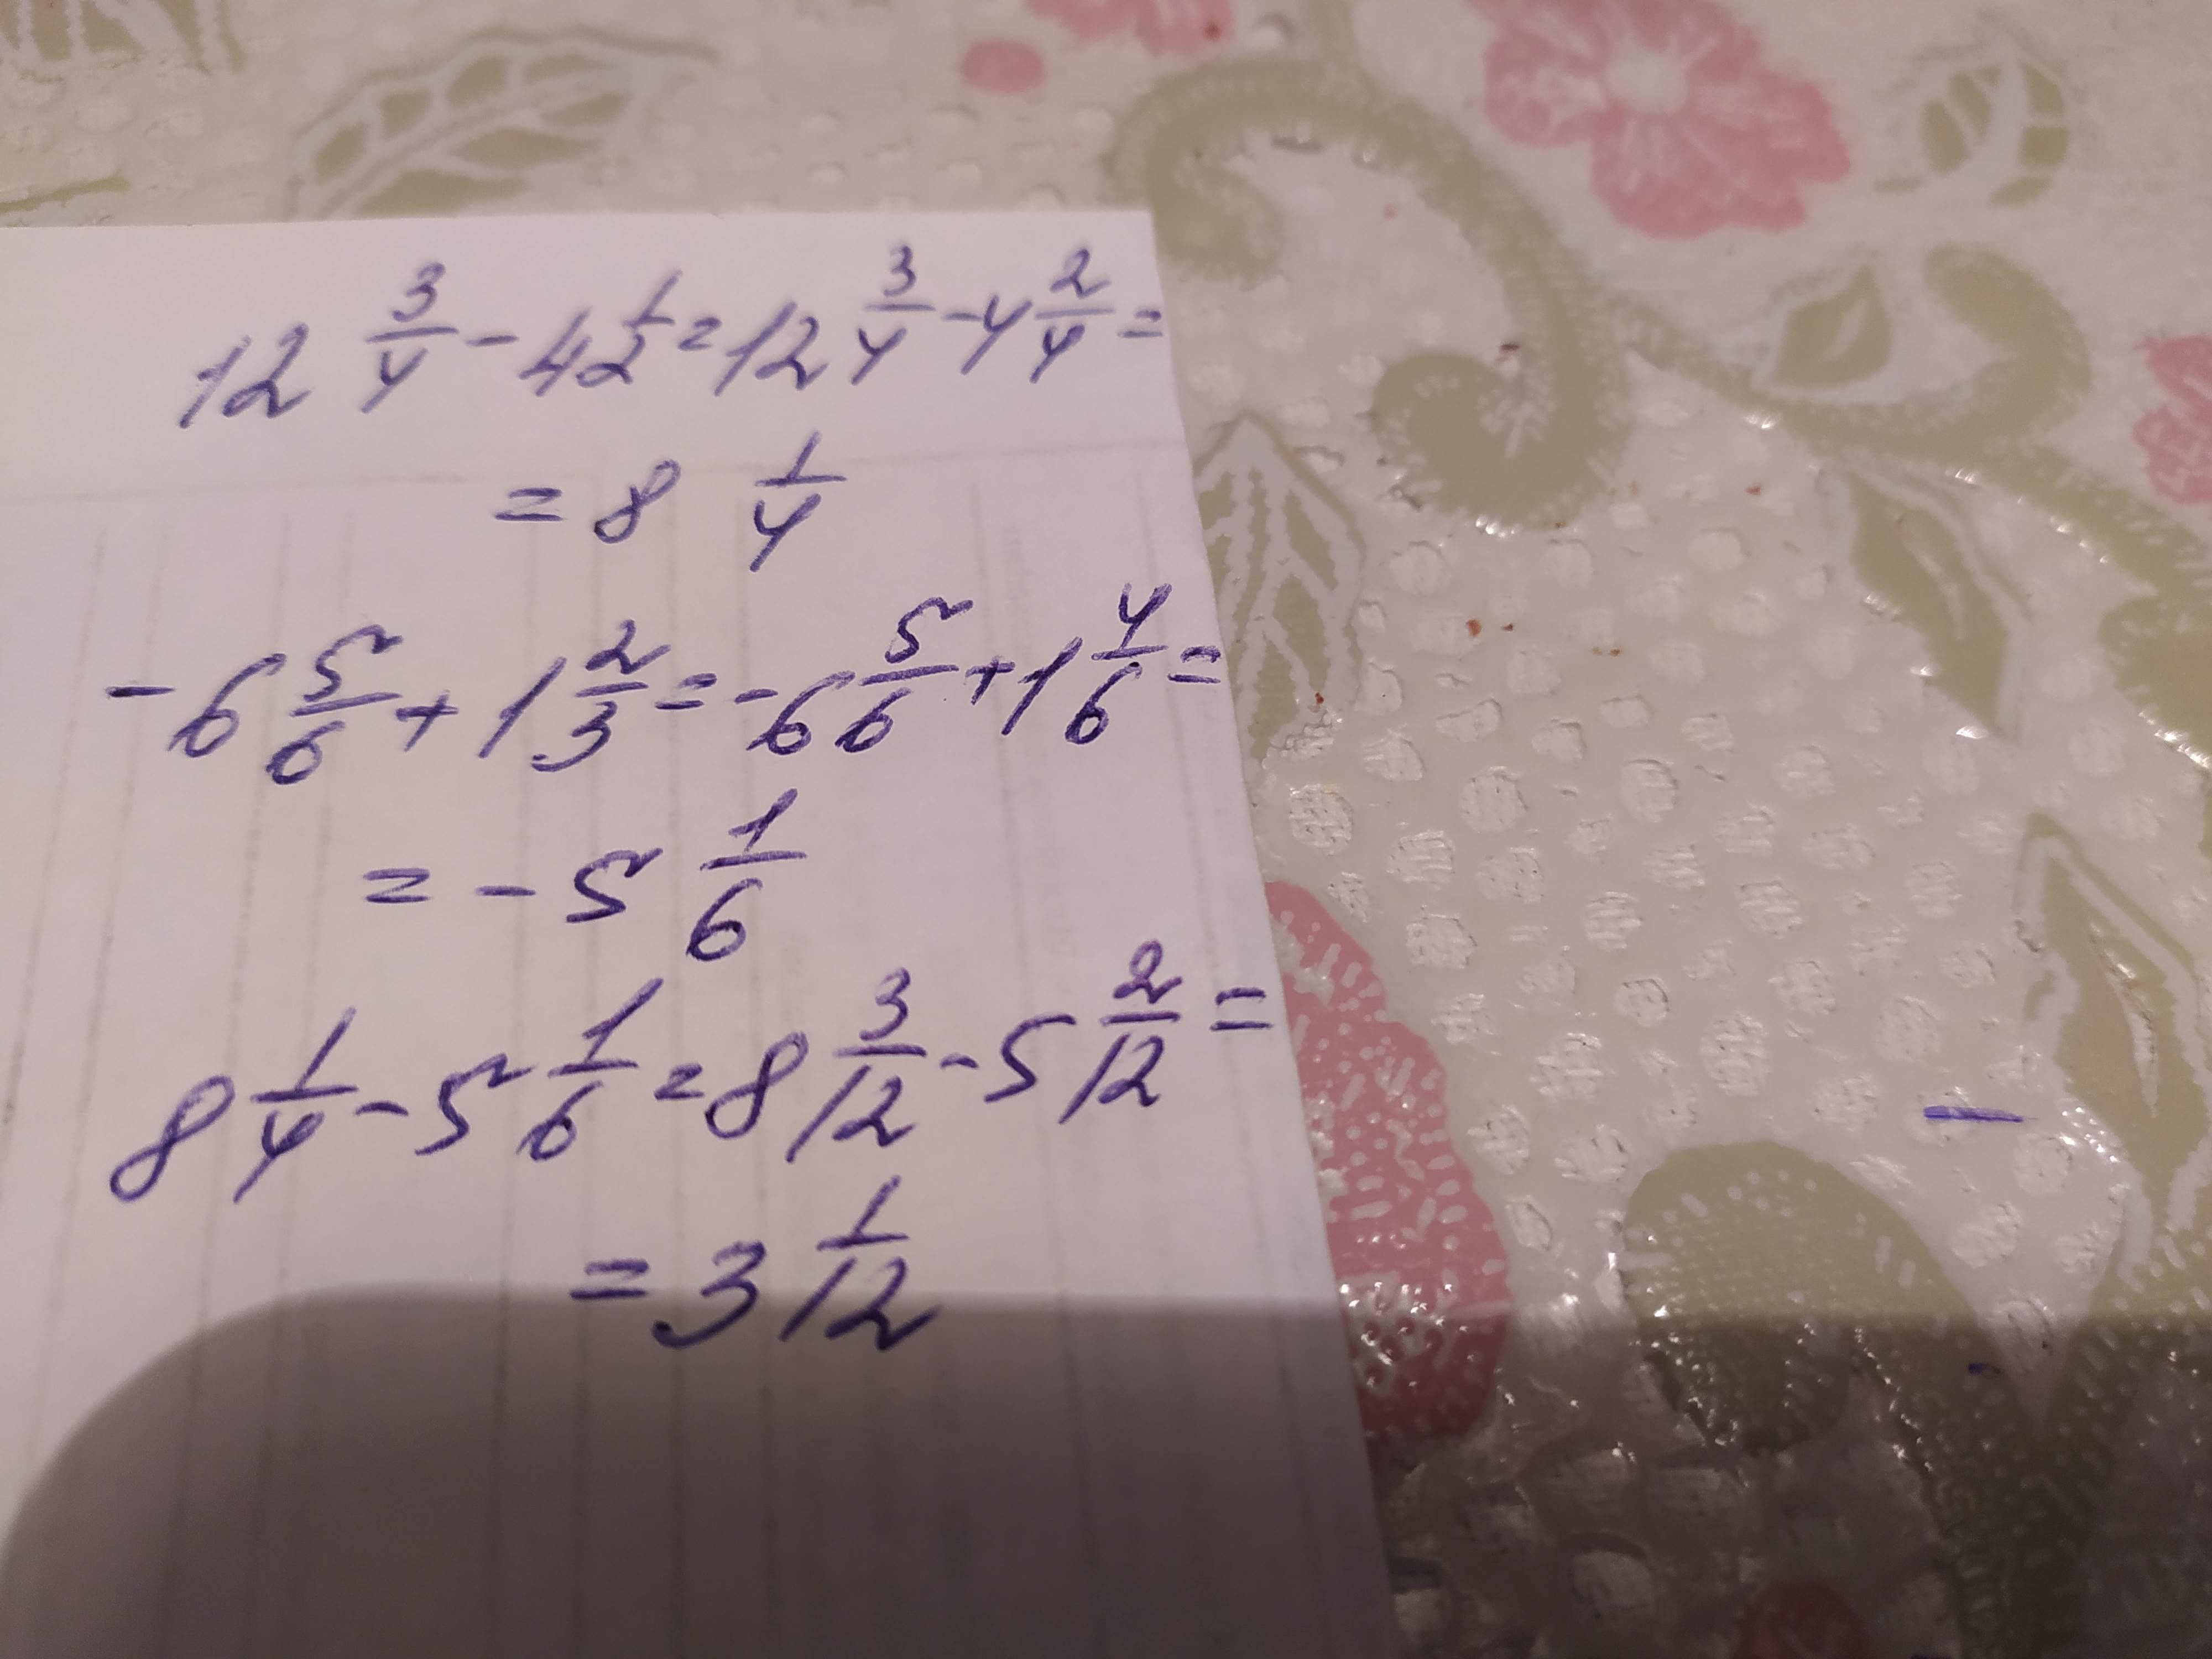 12 3/4 - 4 1/2 = 12 3/4 - 4 2/4 =
= 8 1/4
- 6 5/6 + 1 2/3 = - 6 5/6 + 1 4/6 =
= - 5 1/6
8 1/4 - 5 1/6 = 8 3/12 - 5 2/12 =
= 3 1/12